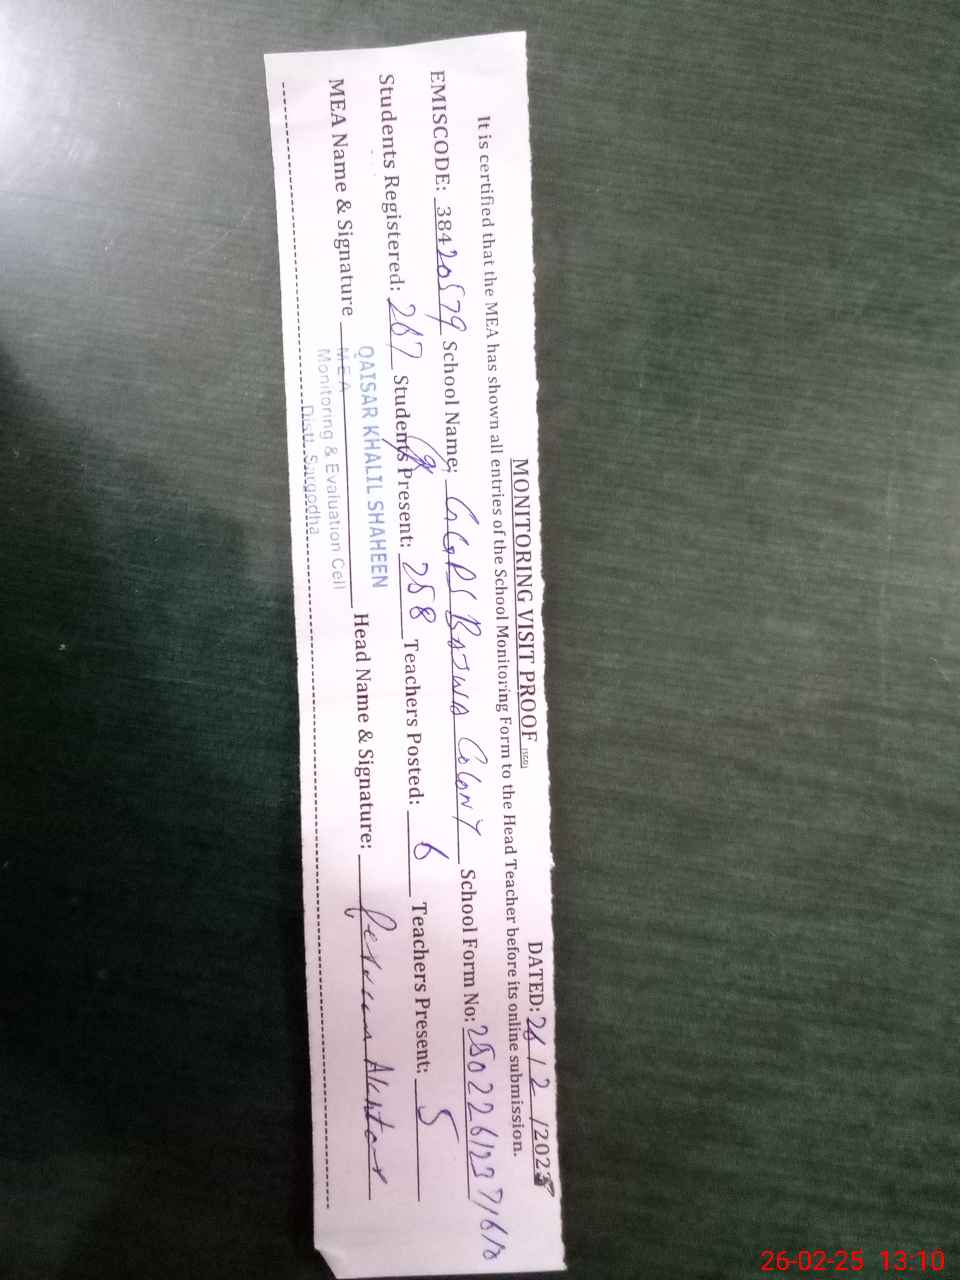 MONITORING VISIT PROOF (SGD) DATED: 26 / 2 /2025
It is certified that the MEA has shown all entries of the School Monitoring Form to the Head Teacher before its online submission.
EMISCODE: 38420579 School Name: GGPS BAJWA COLONY School Form No:
Students Registered: 267 Students Present: 258 Teachers Posted: 6 Teachers Present: 5
MEA Name & Signature QAISAR KHALIL SHAHEEN Head Name & Signature: Akhtar
M.E.A
Monitoring & Evaluation Cell
Distt. Sargodha
26-02-25 13:10